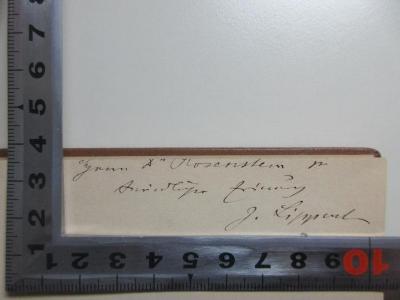 Herrn Dr Rosenstein zu
freundlicher Erinnerung
J. Lippert
8
7
6
5
4
3
2
1
5 4 3 2 1
1 2 3 4 5 6 7 8 9 10